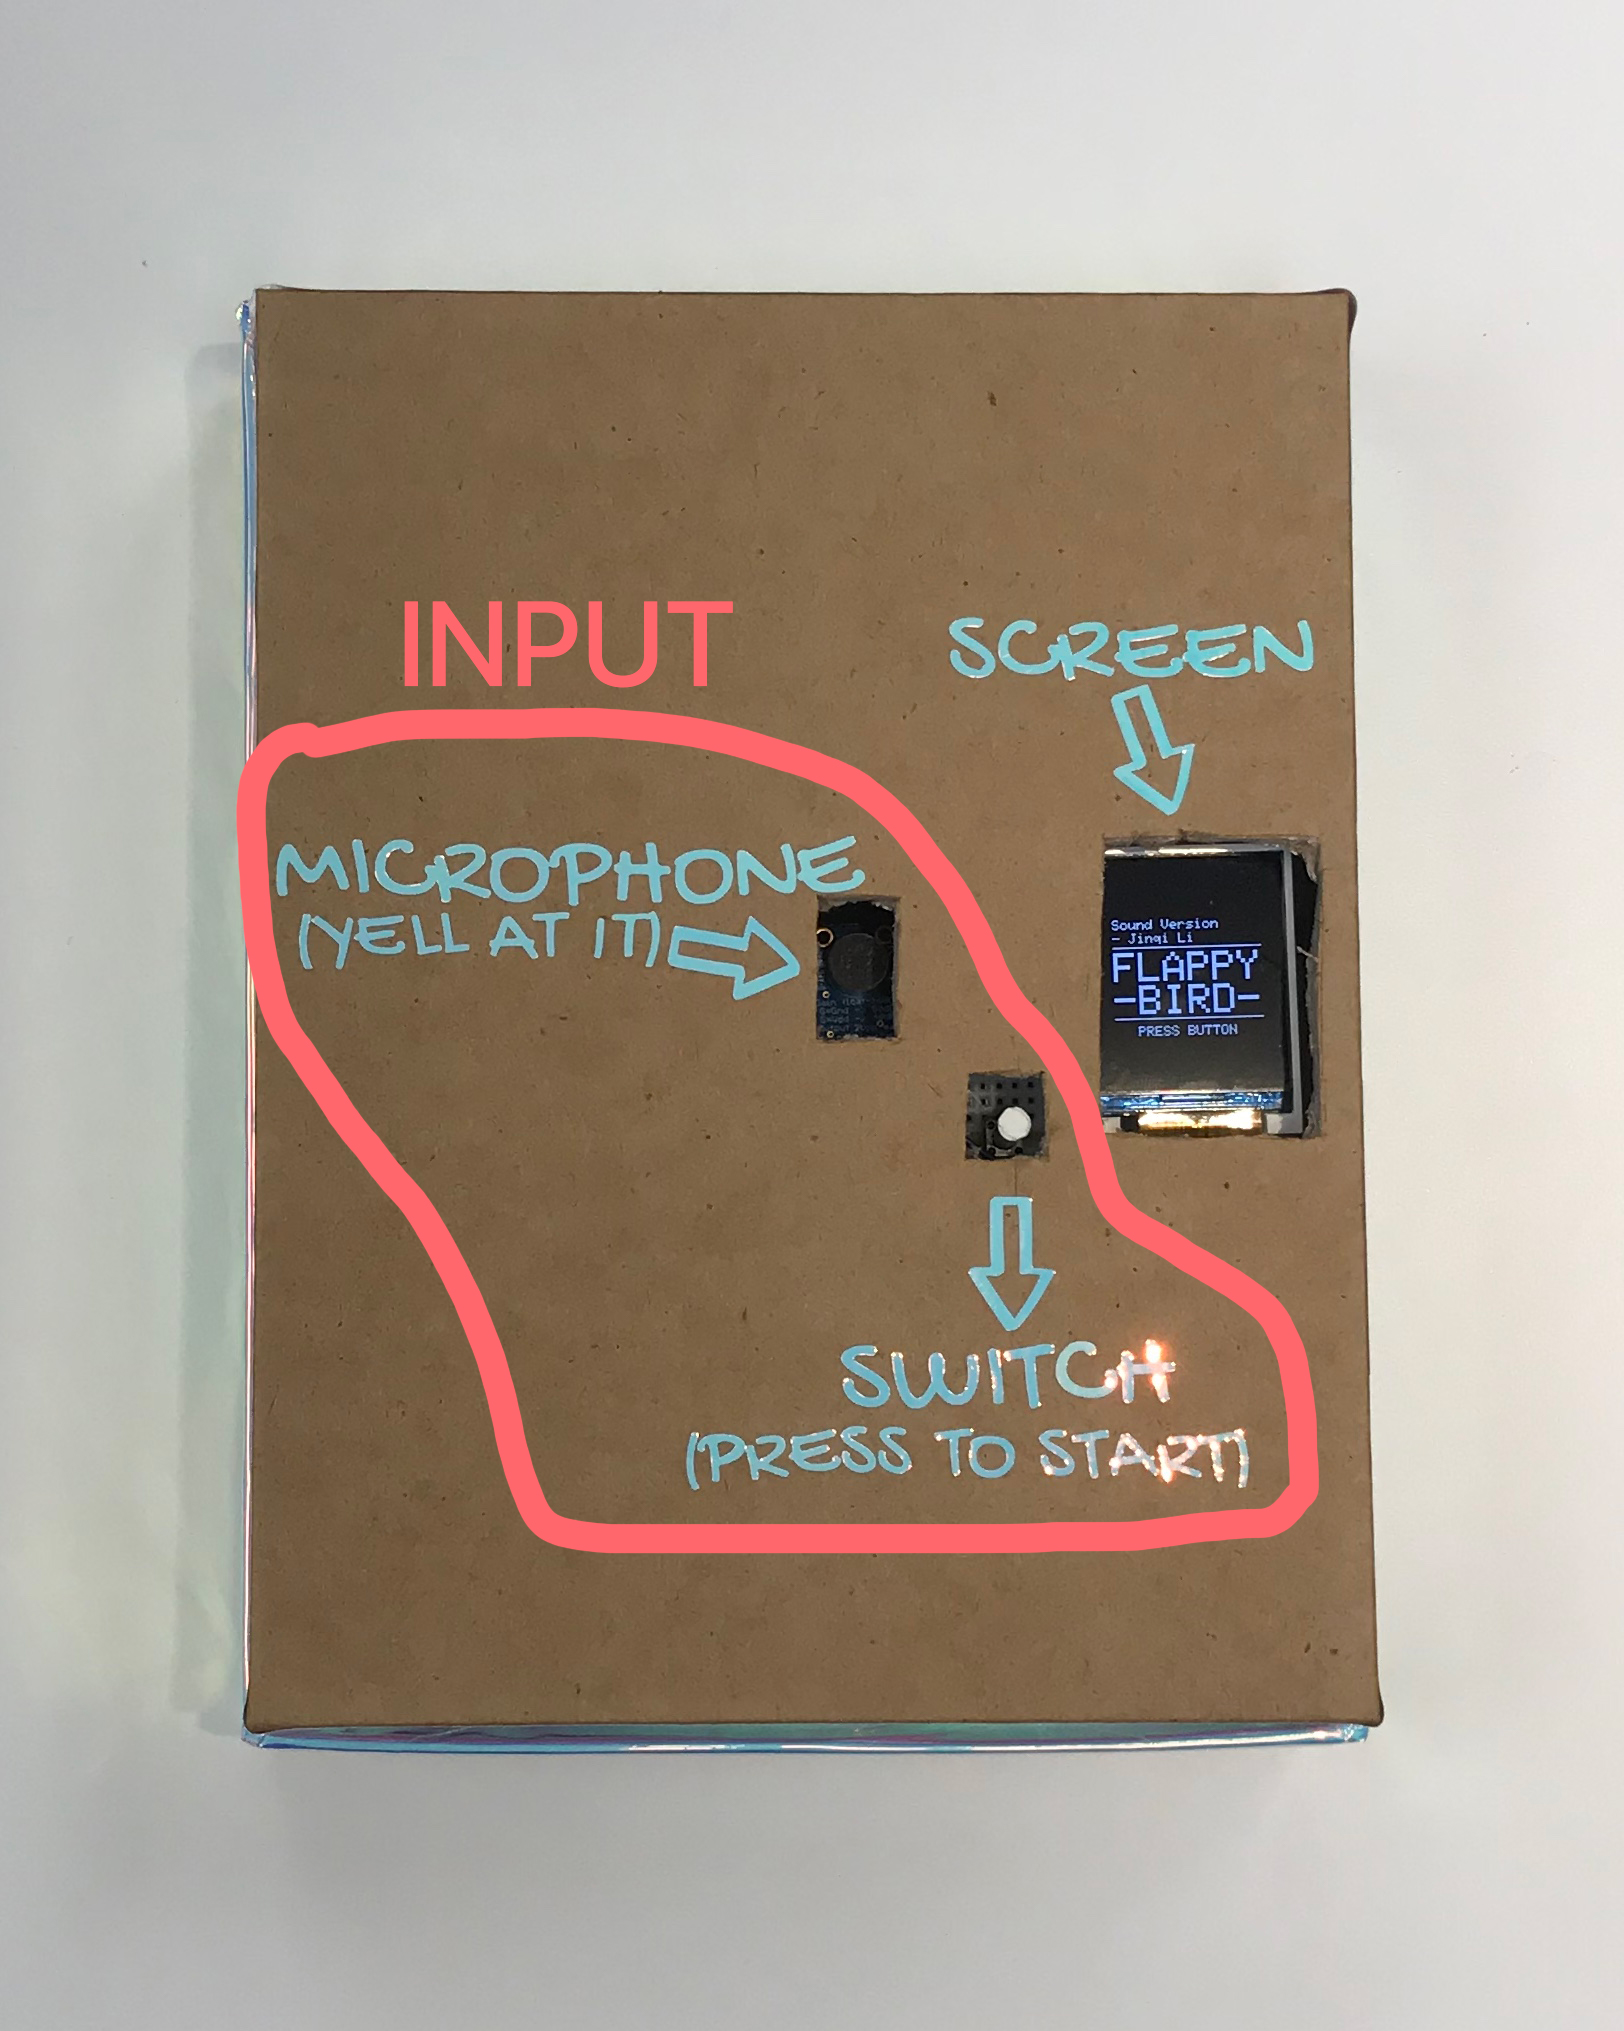 INPUT
SCREEN
MICROPHONE
(YELL AT IT)
Sound Version
- Jinqi Li
FLAPPY
-BIRD-
PRESS BUTTON
SWITCH
(PRESS TO START)